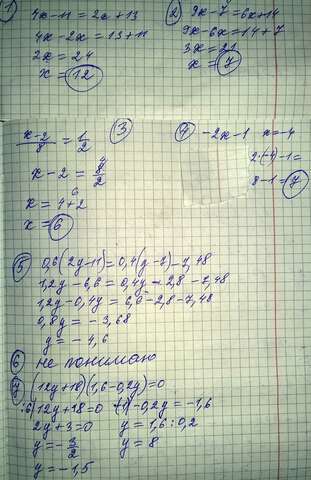 1) 4x-11=2x+13
4x-2x=13+11
2x=24
x=12
2) 9x-7=6x+14
9x-6x=14+7
3x=21
x=7
3) x-2/8=1/2
x-2=8/2 4
x=4+2 6
x=6
4) -2x-1 x=-4
2·(-4)-1=
8-1=7
5) 0,6(2y-11)=0,4(y-7)-7,48
1,2y-6,6=0,4y-2,8-7,48
1,2y-0,4y=6,6-2,8-7,48
0,8y=-3,68
y=-4,6
6) не понимаю
7) (12y+18)(1,6-0,2y)=0
:6|12y+18=0 -0,2y=-1,6
2y+3=0 y=1,6:0,2
y=-3/2 y=8
y=-1,5